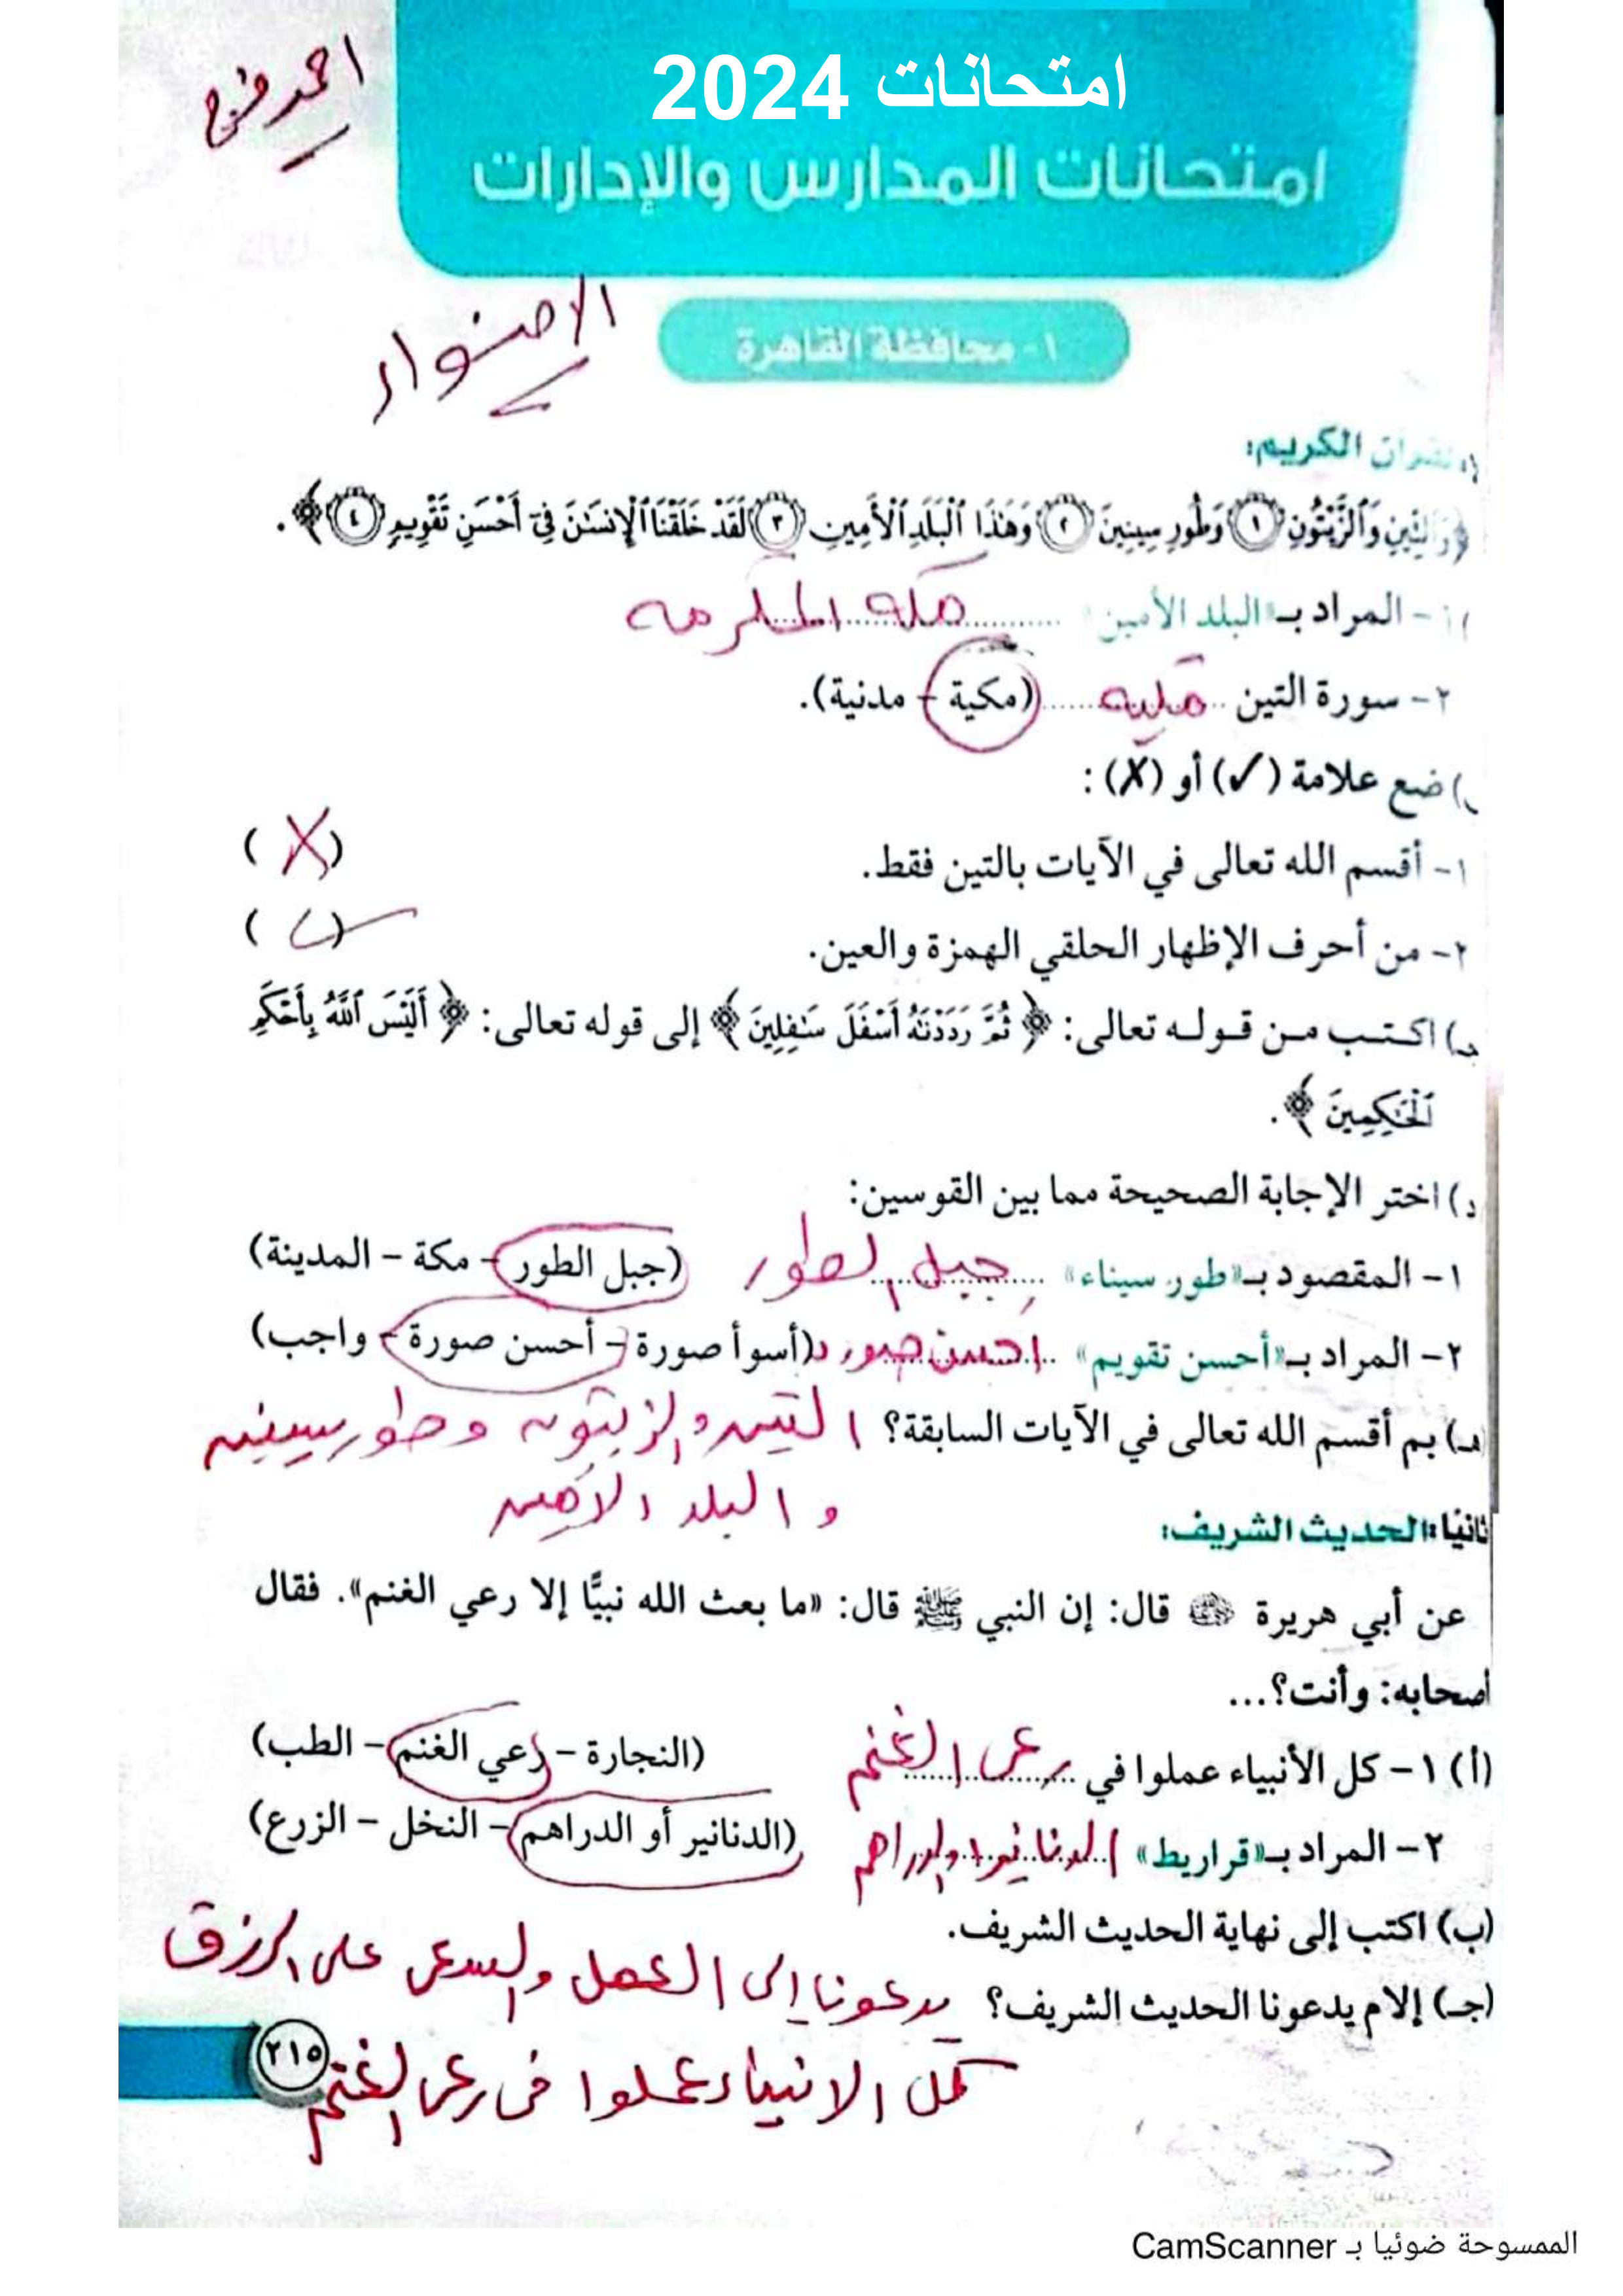 امتحانات 2024
احمد فرج
امتحانات المدارس والإدارات
الاضواء
١- محافظة القاهرة
القرآن الكريم:
﴿وَٱلتِّينِ وَٱلزَّيْتُونِ (١) وَطُورِ سِينِينَ (٢) وَهَٰذَا ٱلْبَلَدِ ٱلْأَمِينِ (٣) لَقَدْ خَلَقْنَا ٱلْإِنسَٰنَ فِىٓ أَحْسَنِ تَقْوِيمٍ (٤)﴾.
١- المراد بـ«البلد الأمين» مكة المكرمه
٢- سورة التين مكيه (مكية - مدنية).
ب) ضع علامة (✓) أو (✗) :
١- أقسم الله تعالى في الآيات بالتين فقط. (✗)
٢- من أحرف الإظهار الحلقي الهمزة والعين. (✓)
جـ) اكتب من قوله تعالى: ﴿ثُمَّ رَدَدْنَٰهُ أَسْفَلَ سَٰفِلِينَ﴾ إلى قوله تعالى: ﴿أَلَيْسَ ٱللَّهُ بِأَحْكَمِ
ٱلْحَٰكِمِينَ﴾.
د) اختر الإجابة الصحيحة مما بين القوسين:
١- المقصود بـ«طور سيناء» جبل الطور (جبل الطور - مكة - المدينة)
٢- المراد بـ«أحسن تقويم» احسن صورة (أسوأ صورة - أحسن صورة - واجب)
هـ) بم أقسم الله تعالى في الآيات السابقة؟ التين والزيتون وطور سينين
والبلد الامين
ثانيًا: الحديث الشريف:
عن أبي هريرة رضي الله عنه قال: إن النبي ﷺ قال: «ما بعث الله نبيًّا إلا رعي الغنم». فقال
أصحابه: وأنت؟...
(أ) ١- كل الأنبياء عملوا في رعى الغنم (النجارة - رعي الغنم - الطب)
٢- المراد بـ«قراريط» الدنانير والدراهم (الدنانير أو الدراهم - النخل - الزرع)
(ب) اكتب إلى نهاية الحديث الشريف.
(جـ) إلام يدعونا الحديث الشريف؟ يدعونا إلى العمل والسعى على الرزق
كل الانبياء عملوا فى رعى الغنم
٢١٥
الممسوحة ضوئيا بـ CamScanner